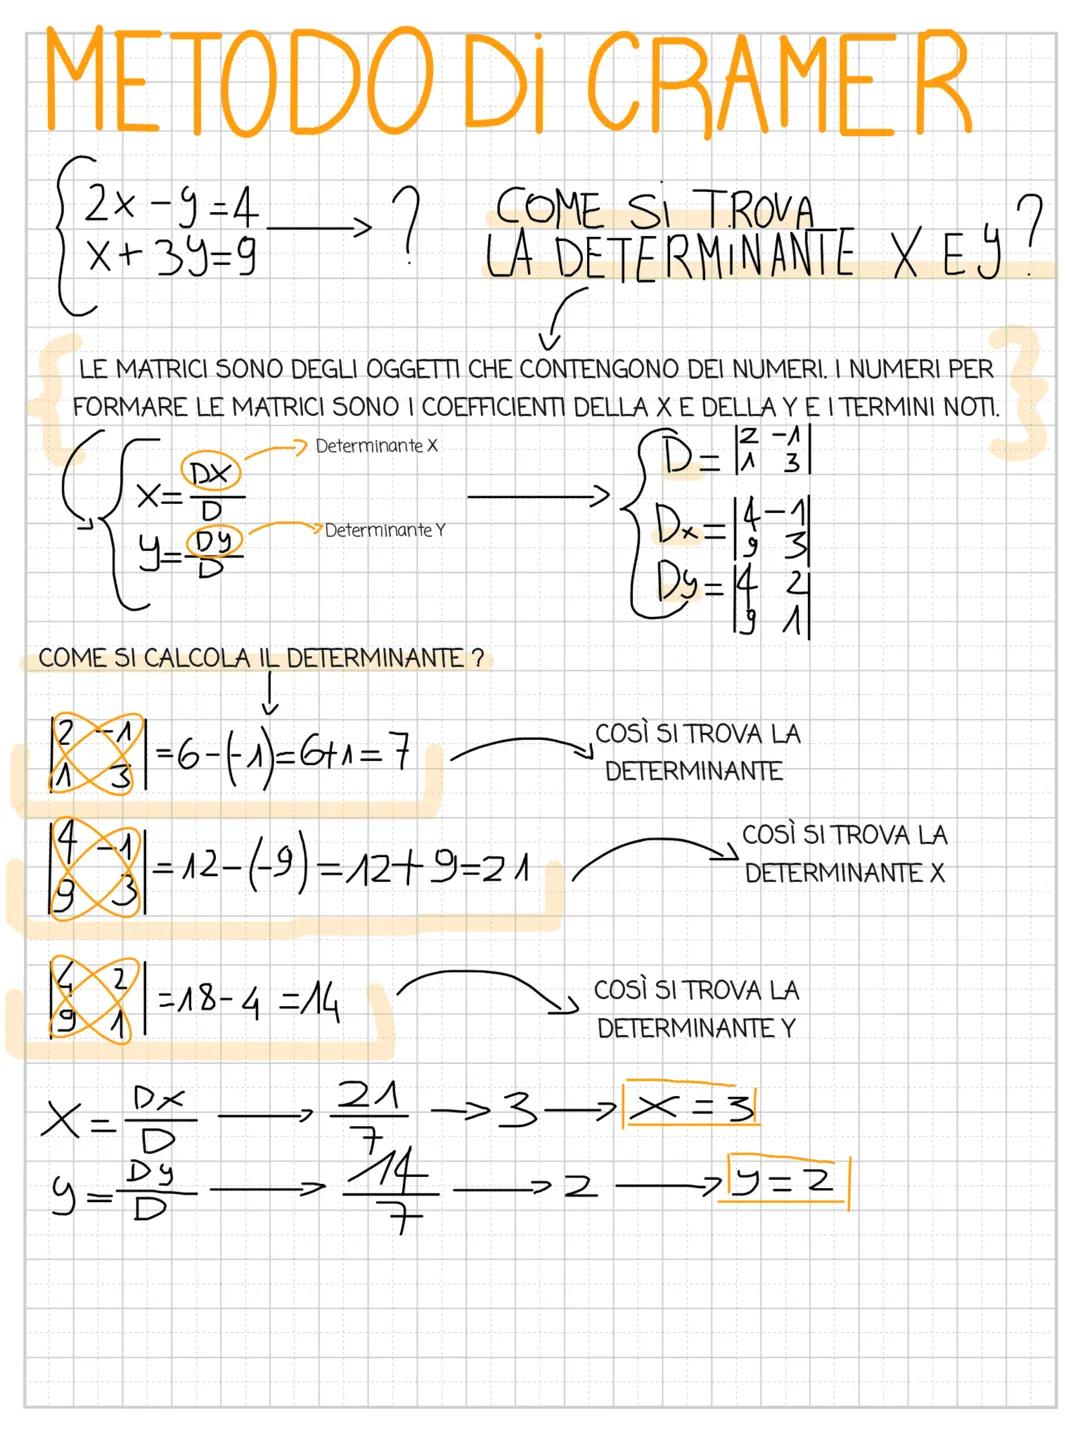 METODO Di CRAMER
2x - y = 4
x + 3y = 9
?
COME Si TROVA
LA DETERMiNANTE X E y ?
LE MATRICI SONO DEGLI OGGETTI CHE CONTENGONO DEI NUMERI. I NUMERI PER
FORMARE LE MATRICI SONO I COEFFICIENTI DELLA X E DELLA Y E I TERMINI NOTI.
x = DX / D
Determinante X
y = Dy / D
Determinante Y
D = |2 -1|
|1 3|
Dx = |4 -1|
|9 3|
Dy = |4 2|
|9 1|
COME SI CALCOLA IL DETERMINANTE ?
|2 -1|
|1 3| = 6 - (-1) = 6+1 = 7
COSÌ SI TROVA LA
DETERMINANTE
|4 -1|
|9 3| = 12 - (-9) = 12 + 9 = 21
COSÌ SI TROVA LA
DETERMINANTE X
|4 2|
|9 1| = 18 - 4 = 14
COSÌ SI TROVA LA
DETERMINANTE Y
X = Dx / D → 21 / 7 → 3 → x = 3
y = Dy / D → 14 / 7 → 2 → y = 2